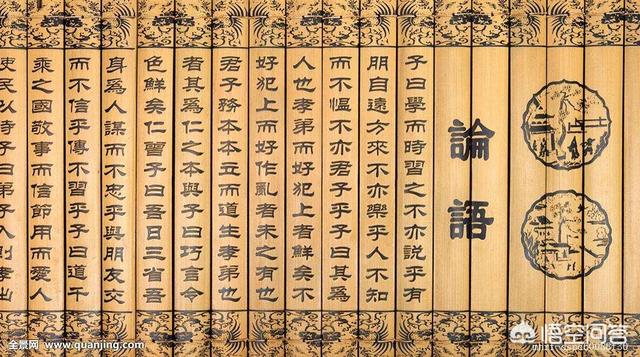 論語
子曰學而時習之不亦説乎有
朋自遠方來不亦樂乎人不知
而不愠不亦君子乎子曰其爲
人也孝弟而好犯上者鮮矣不
好犯上而好作亂者未之有也
君子務本本立而道生孝弟也
者其爲仁之本與子曰巧言令
色鮮矣仁曾子曰吾日三省吾
身爲人謀而不忠乎與朋友交
而不信乎傳不習乎子曰道千
乘之國敬事而信節用而愛人
民以子弟子入則孝出
全景网 www.quanjing.com
悟空问答